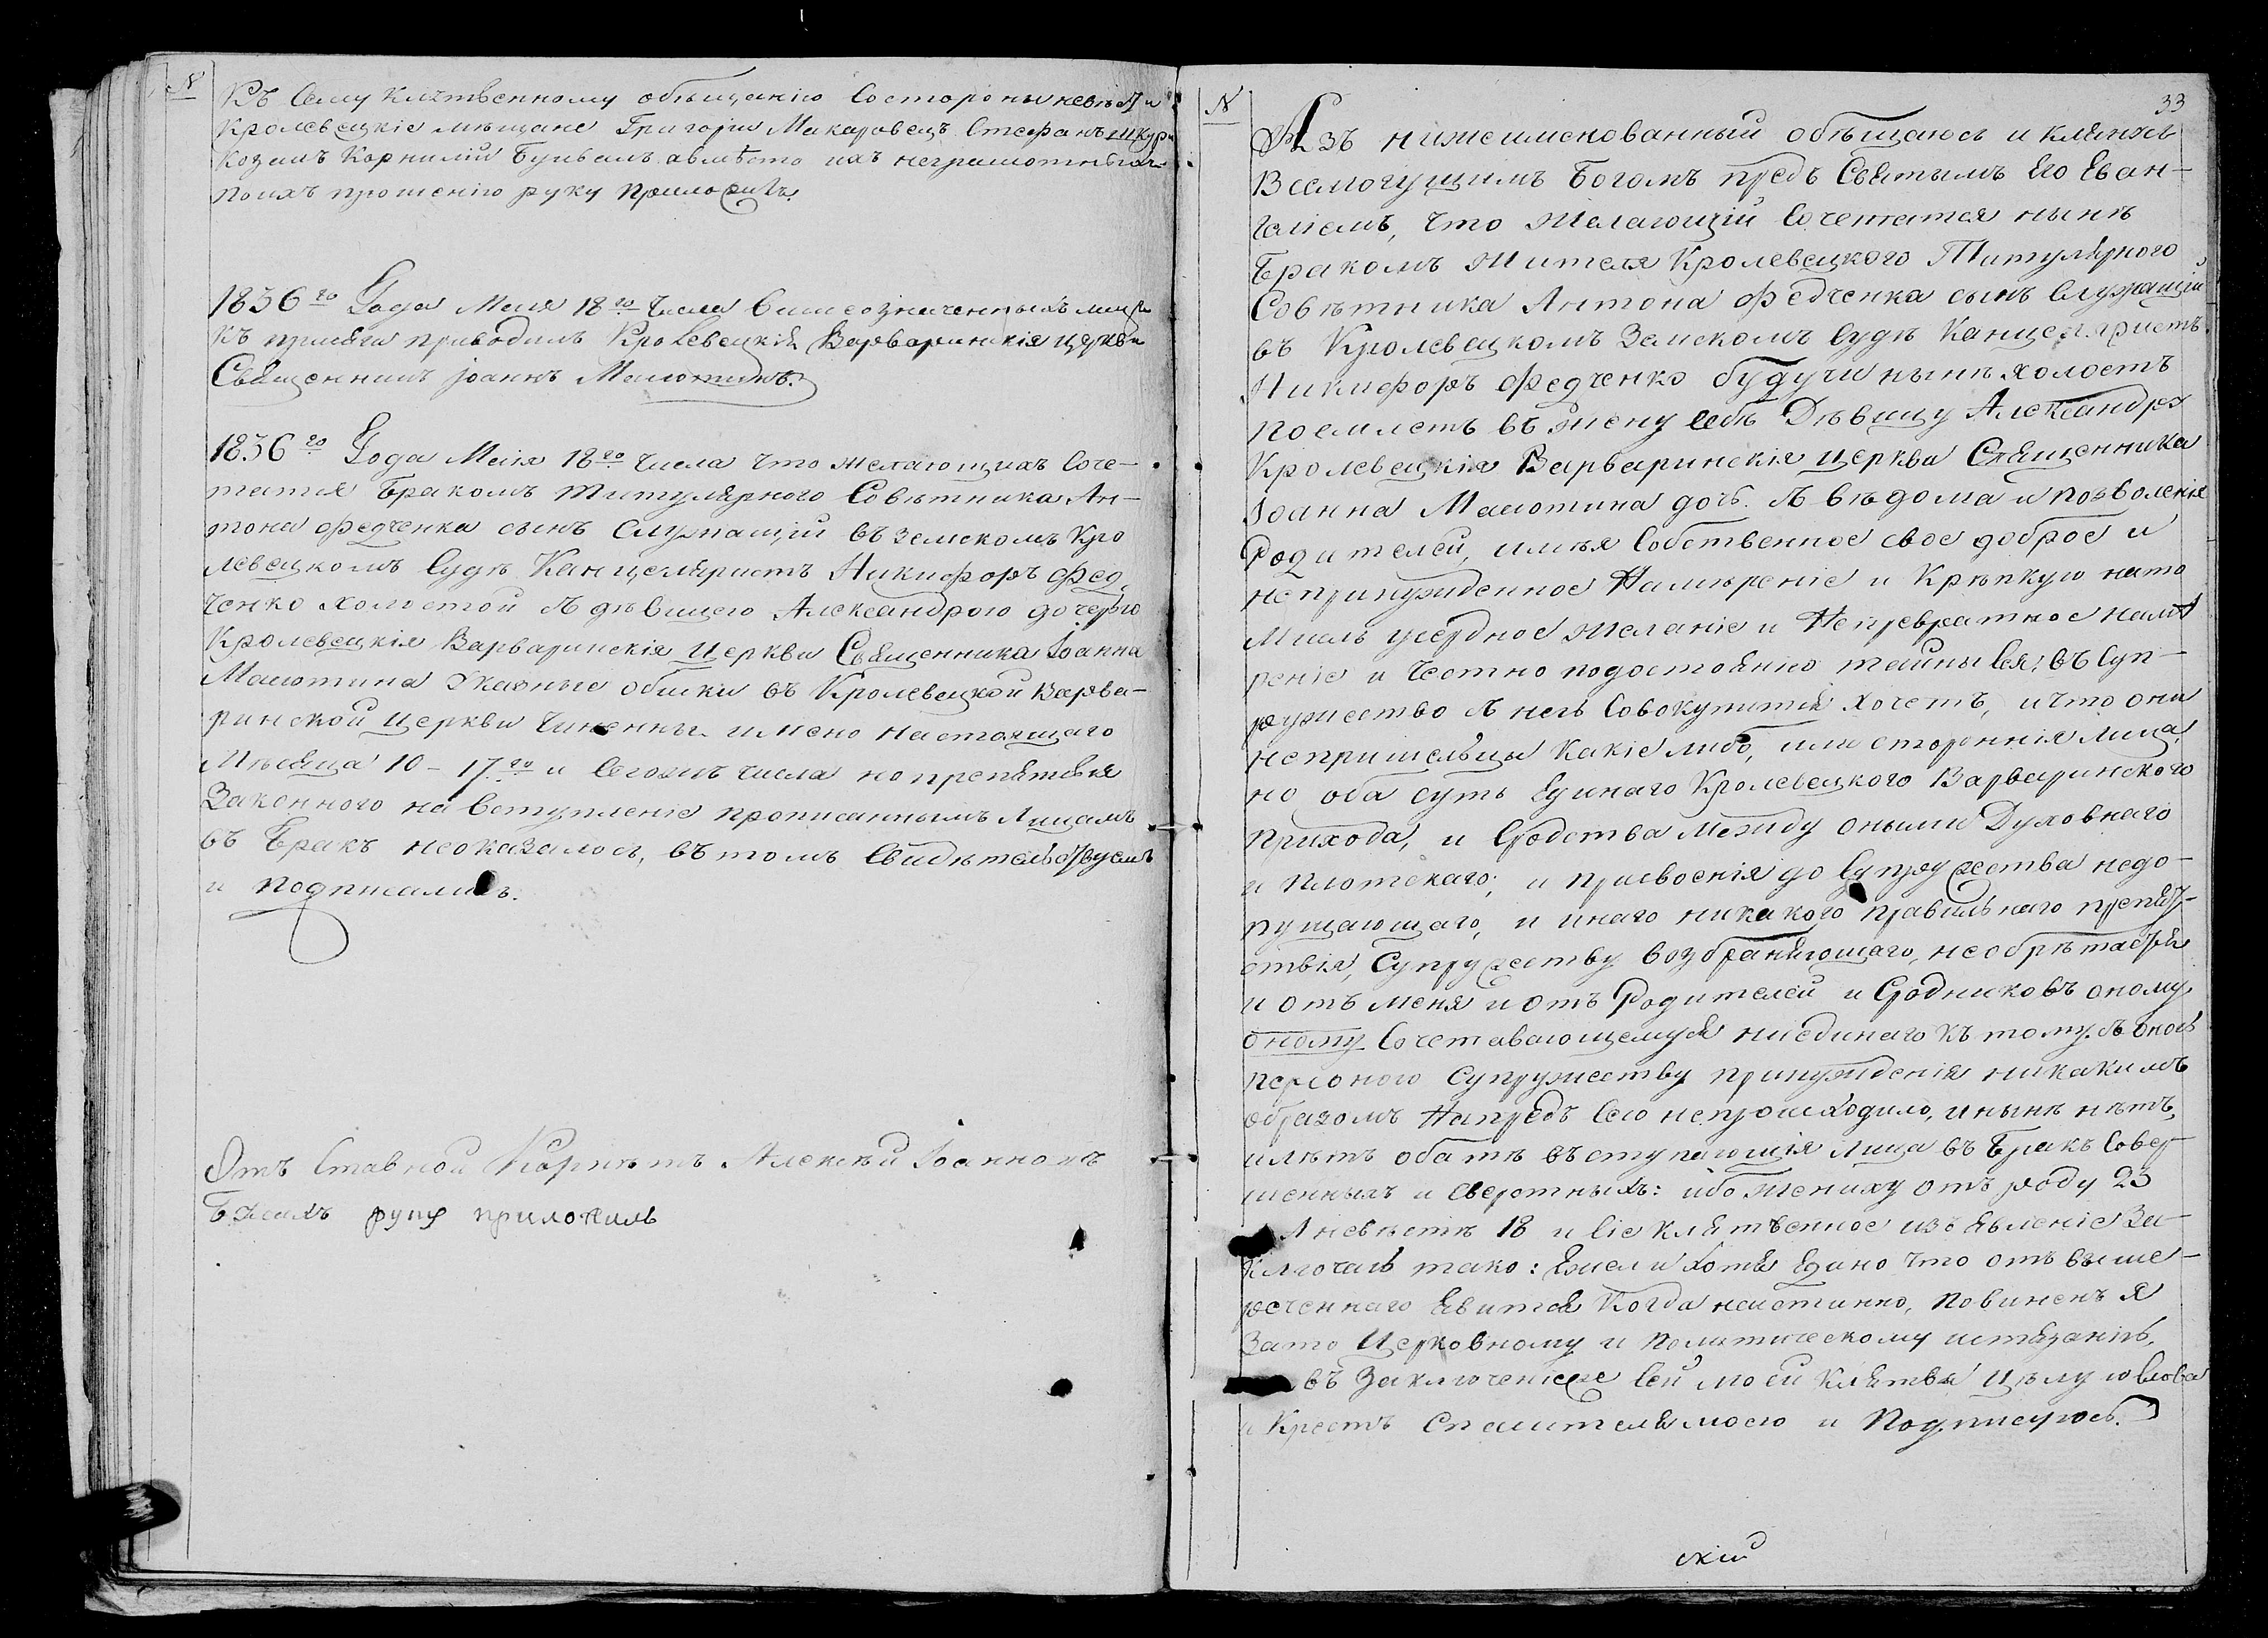 N
Къ Сему клятвенному обѣщанію Состороны невѣсти
Кролевецкіе мѣщане Григорій Макаровецъ Стефанъ
Козакъ Корнилій авмѣсто ихъ неграмотныхъ
поихъ прошенію руку приложилъ.
1836го Года Маія 18го Числа вишеозначенныхъ лицъ
къ присяги приводилъ Кролевецкія Варваринскія церкви
Священникъ Іоаннъ Малютинъ.
1836го Года Маія 18го Числа что желающихъ Соче-
татся Бракомъ Титулярного Совѣтника Ан-
тона Федченка сынъ Служащій въ земскомъ Кро
левецкомъ Судѣ Канцеляристъ Никифоръ Фед
ченко холостой Съ дѣвицею Александрою дочерю
Кролевецкія Варваринскія Церкви Священника Іоанна
Малютина обиски въ Кролевецкой Варва-
ринской Церкви Чиненны имено настоящаго
Мѣсяца 10 - 17го и Сегожъ числа но препятствія
Законного на Вступленіе прописаннымъ Лицамъ
въ Бракъ неоказалось, въ томъ Свидѣтельствуемъ
и подписались.
Отъ Ставной Корнетъ Алексѣй Іоанновъ
руку приложилъ
N
33
Азъ нижеименованный обѣщаюсь и клянусь
Всемогущимъ Богомъ предъ Святымъ Его Еван-
геліемъ, что желающій Сочетатся нынѣ
Бракомъ жителя Кролевецкого Титулярного
Совѣтника Антона Федченка сынъ Служащій
въ Кролевецкомъ Земскомъ Судѣ Канцеляристъ
Никифоръ Федченко будучи нынѣ холостъ
поемлетъ въ жену себѣ Дѣвицу Александру
Кролевецкія Варваринскія Церкви Священника
Іоанна Малютина дочь. Съ вѣдома и позволенія
Родителей, имѣя Собственное свое доброе и
непринужденное Намѣреніе и Крѣпкую нато
Мысль усердное желаніе и Непревратное намѣ
реніе и Честно подостоянію тайны Сея въ Суп-
ружество Съ нею Совокупится хочетъ, и что они
непришельцы какіе либо, или стороннія Лица,
но оба суть Единаго Кролевецкого Варваринского
прихода, и Сродства Между оными Духовнаго
и Плотскаго, и присвоенія до Супружества недо-
пущающаго, и инаго никакого правильнаго препят-
ствія, Супружеству возбраняющаго, необрѣтается
и отъ меня и отъ Родителей и Сродниковъ оному
оному Сочетавающемуся ниединаго къ тому. Съ оною
персоною Супружеству принужденія никакимъ
образомъ Напредъ Сего непроисходило, и нынѣ нѣтъ,
илѣтъ обатѣ въступающія лица въ Бракъ Совер
шенныхъ и сверстныхъ: ибо жениху отъ роду 23
А невѣстѣ 18 и Сіе клятвенное изъявленіе За-
ключаю тако: Ежели хотя Едино что отъ выше-
реченнаго Явится Когда неистинно, повиненъ я
Зато Церковному и Политическому истязанію,
въ Заключеніеже Сей моей Клятвы Цѣлую слова
и Крестъ Спасителя моего и Подписуюсь.